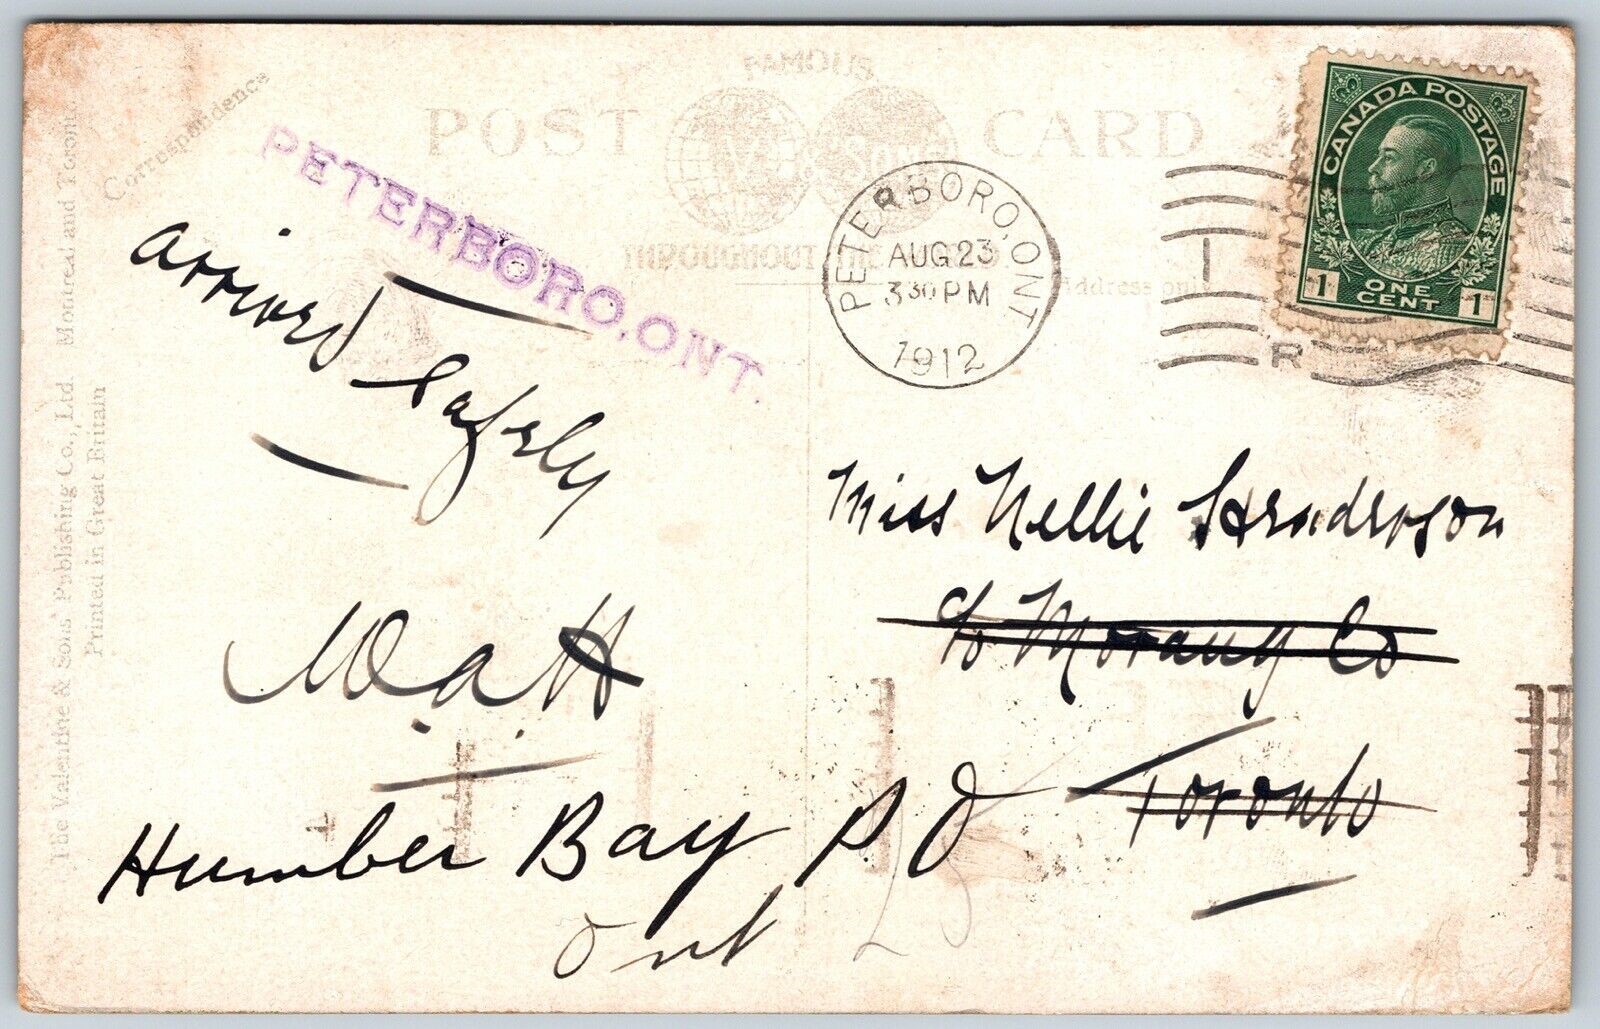 FAMOUS
POST CARD
THROUGHOUT THE
Correspondence
Address only
PETERBORO, ONT.
PETERBORO, ONT
AUG 23
3 30 PM
1912
R
CANADA POSTAGE
1 ONE CENT 1
arrived
Safely
W.a.H
Miss Nellie Henderson
c/o Morang Co
Toronto
Humber Bay P O
Ont
The Valentine & Sons' Publishing Co., Ltd. Montreal and Toronto
Printed in Great Britain